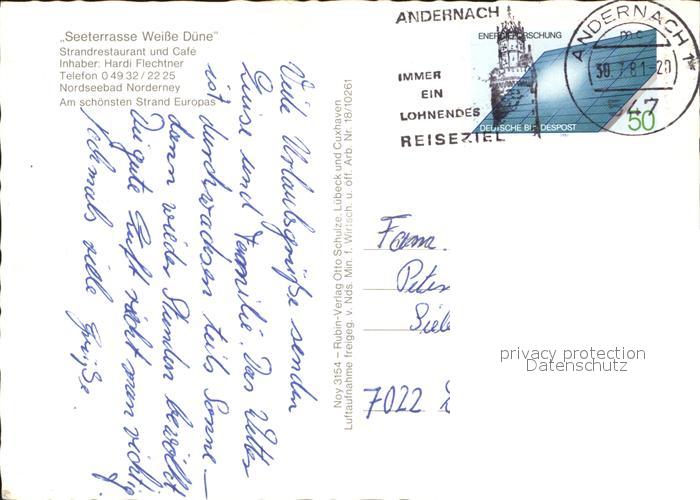 „Seeterrasse Weiße Düne"
Strandrestaurant und Café
Inhaber: Hardi Flechtner
Telefon 0 49 32 / 22 25
Nordseebad Norderney
Am schönsten Strand Europas
Viele Urlaubsgrüße senden
Luise und Familie. Das Wetter
ist durchwachsen teils Sonne –
dann wieder Stunden bewölkt
Die gute Luft riecht man richtig
nochmals viele Grüße
Noy 3154 – Rubin-Verlag Otto Schulze, Lübeck und Cuxhaven
Luftaufnahme freigeg. v. Nds. Min. f. Wirtsch. u. öff. Arb. Nr. 18/10261
ANDERNACH
IMMER
EIN
LOHNENDES
REISEZIEL
ENERGIEFORSCHUNG
DEUTSCHE BUNDESPOST
50
ANDERNACH 1
mc
30.7.81-20
47
Fam.
Peter
Siele
7022
privacy protection
Datenschutz